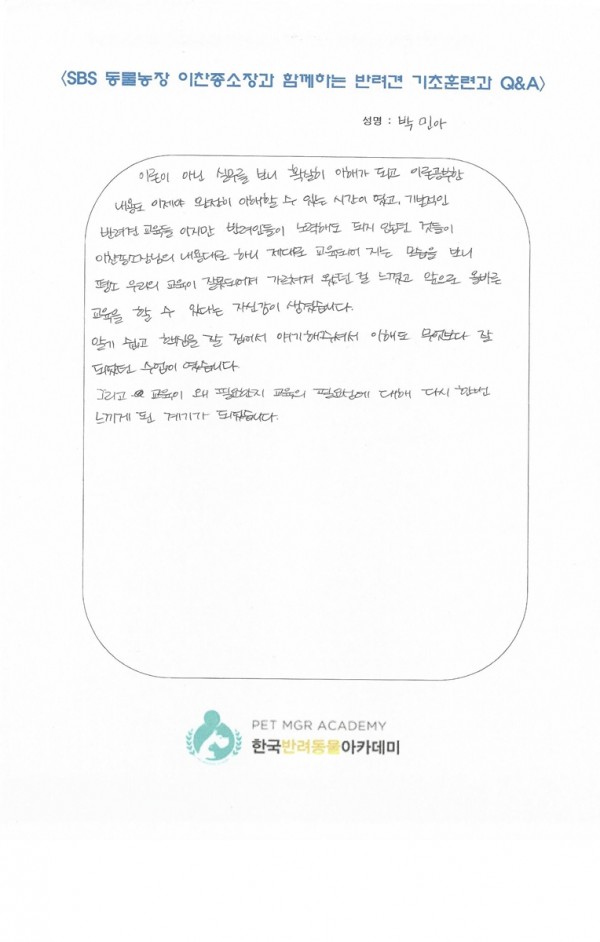 〈SBS 동물농장 이찬종소장과 함께하는 반려견 기초훈련과 Q&A〉
성명 : 박민아
이론이 아닌 실무를 보니 확실히 이해가 되고 이론공부한
내용도 이제야 완전히 이해할 수 있는 시간이 였고, 기본적인
반려견 교육들 이지만 반려인들이 노력해도 되지 않았던 것들이
이찬종소장님의 내용대로 하니 제대로 교육되어 지는 모습을 보니
평소 우리의 교육이 잘못되어져 가르쳐져 왔던 걸 느꼈고 앞으로 올바른
교육을 할 수 있다는 자신감이 생겼습니다.
알기 쉽고 핵심을 잘 집어서 얘기해주셔서 이해도 무엇보다 잘
되었던 수업이 였습니다
그리고 교육이 왜 필요한지 교육의 필요성에 대해 다시 한번
느끼게 된 계기가 되었습니다.
PET MGR ACADEMY
한국반려동물아카데미